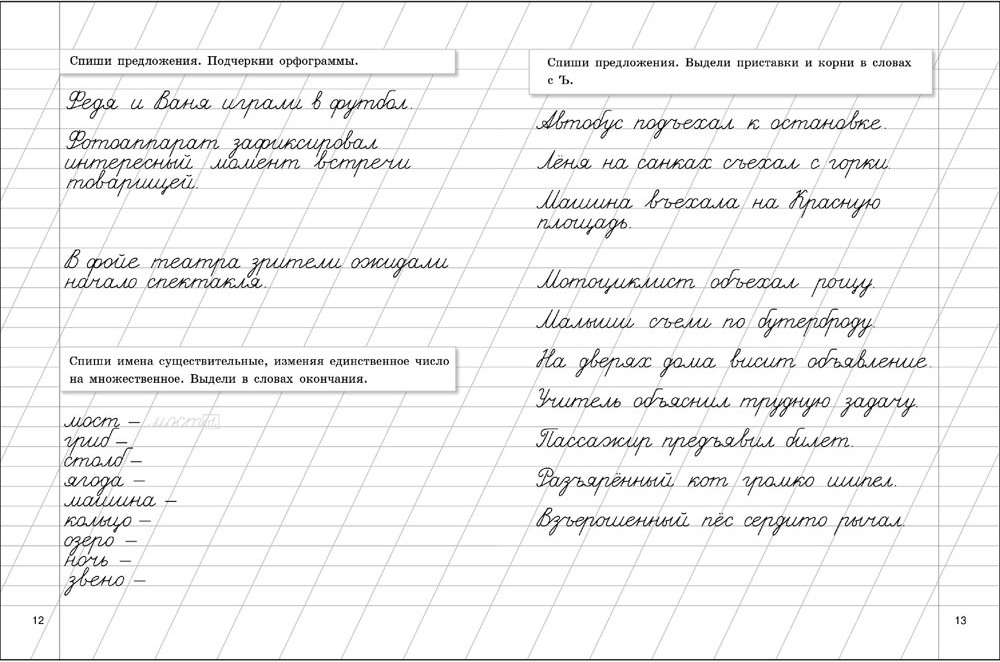 Спиши предложения. Подчеркни орфограммы.
Федя и Ваня играли в футбол.
Фотоаппарат зафиксировал
интересный момент встречи
товарищей.
В фойе театра зрители ожидали
начало спектакля.
Спиши имена существительные, изменяя единственное число
на множественное. Выдели в словах окончания.
мост – мосты
гриб –
столб –
ягода –
машина –
кольцо –
озеро –
ночь –
звено –
12
Спиши предложения. Выдели приставки и корни в словах
с Ъ.
Автобус подъехал к остановке.
Лёня на санках съехал с горки.
Машина въехала на Красную
площадь.
Мотоциклист объехал рощу.
Малыши съели по бутерброду.
На дверях дома висит объявление.
Учитель объяснил трудную задачу.
Пассажир предъявил билет.
Разъярённый кот громко шипел.
Взъерошенный пёс сердито рычал.
13